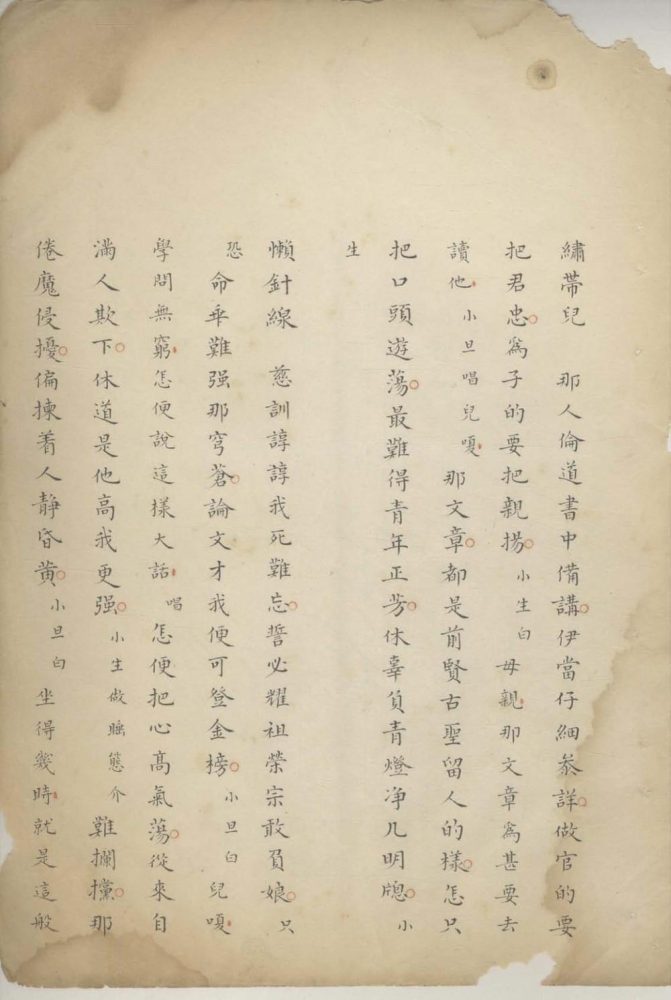 繡帶兒　那人倫道書中備講。伊當仔細叅詳。做官的要
把君忠。爲子的要把親揚。小生白　母親、那文章爲甚要去
讀他、小旦唱　兒嗄、那文章。都是前賢古聖留人的樣。怎只
把口頭遊蕩。最難得青年正芳。休辜負青燈净几明牕。小
生
懶針線　慈訓諄諄我死難忘。誓必耀祖榮宗敢負娘。只
恐命乖難强那穹蒼。論文才我便可登金榜。小旦白　兒嗄、
學問無窮、怎便說這樣大話、唱　怎便把心高氣蕩。從來自
滿人欺下。休道是他高我更强。小生做睡態介　難攔擋。那
倦魔侵擾。偏揀着人靜昏黄。小旦白　坐得幾時、就是這般